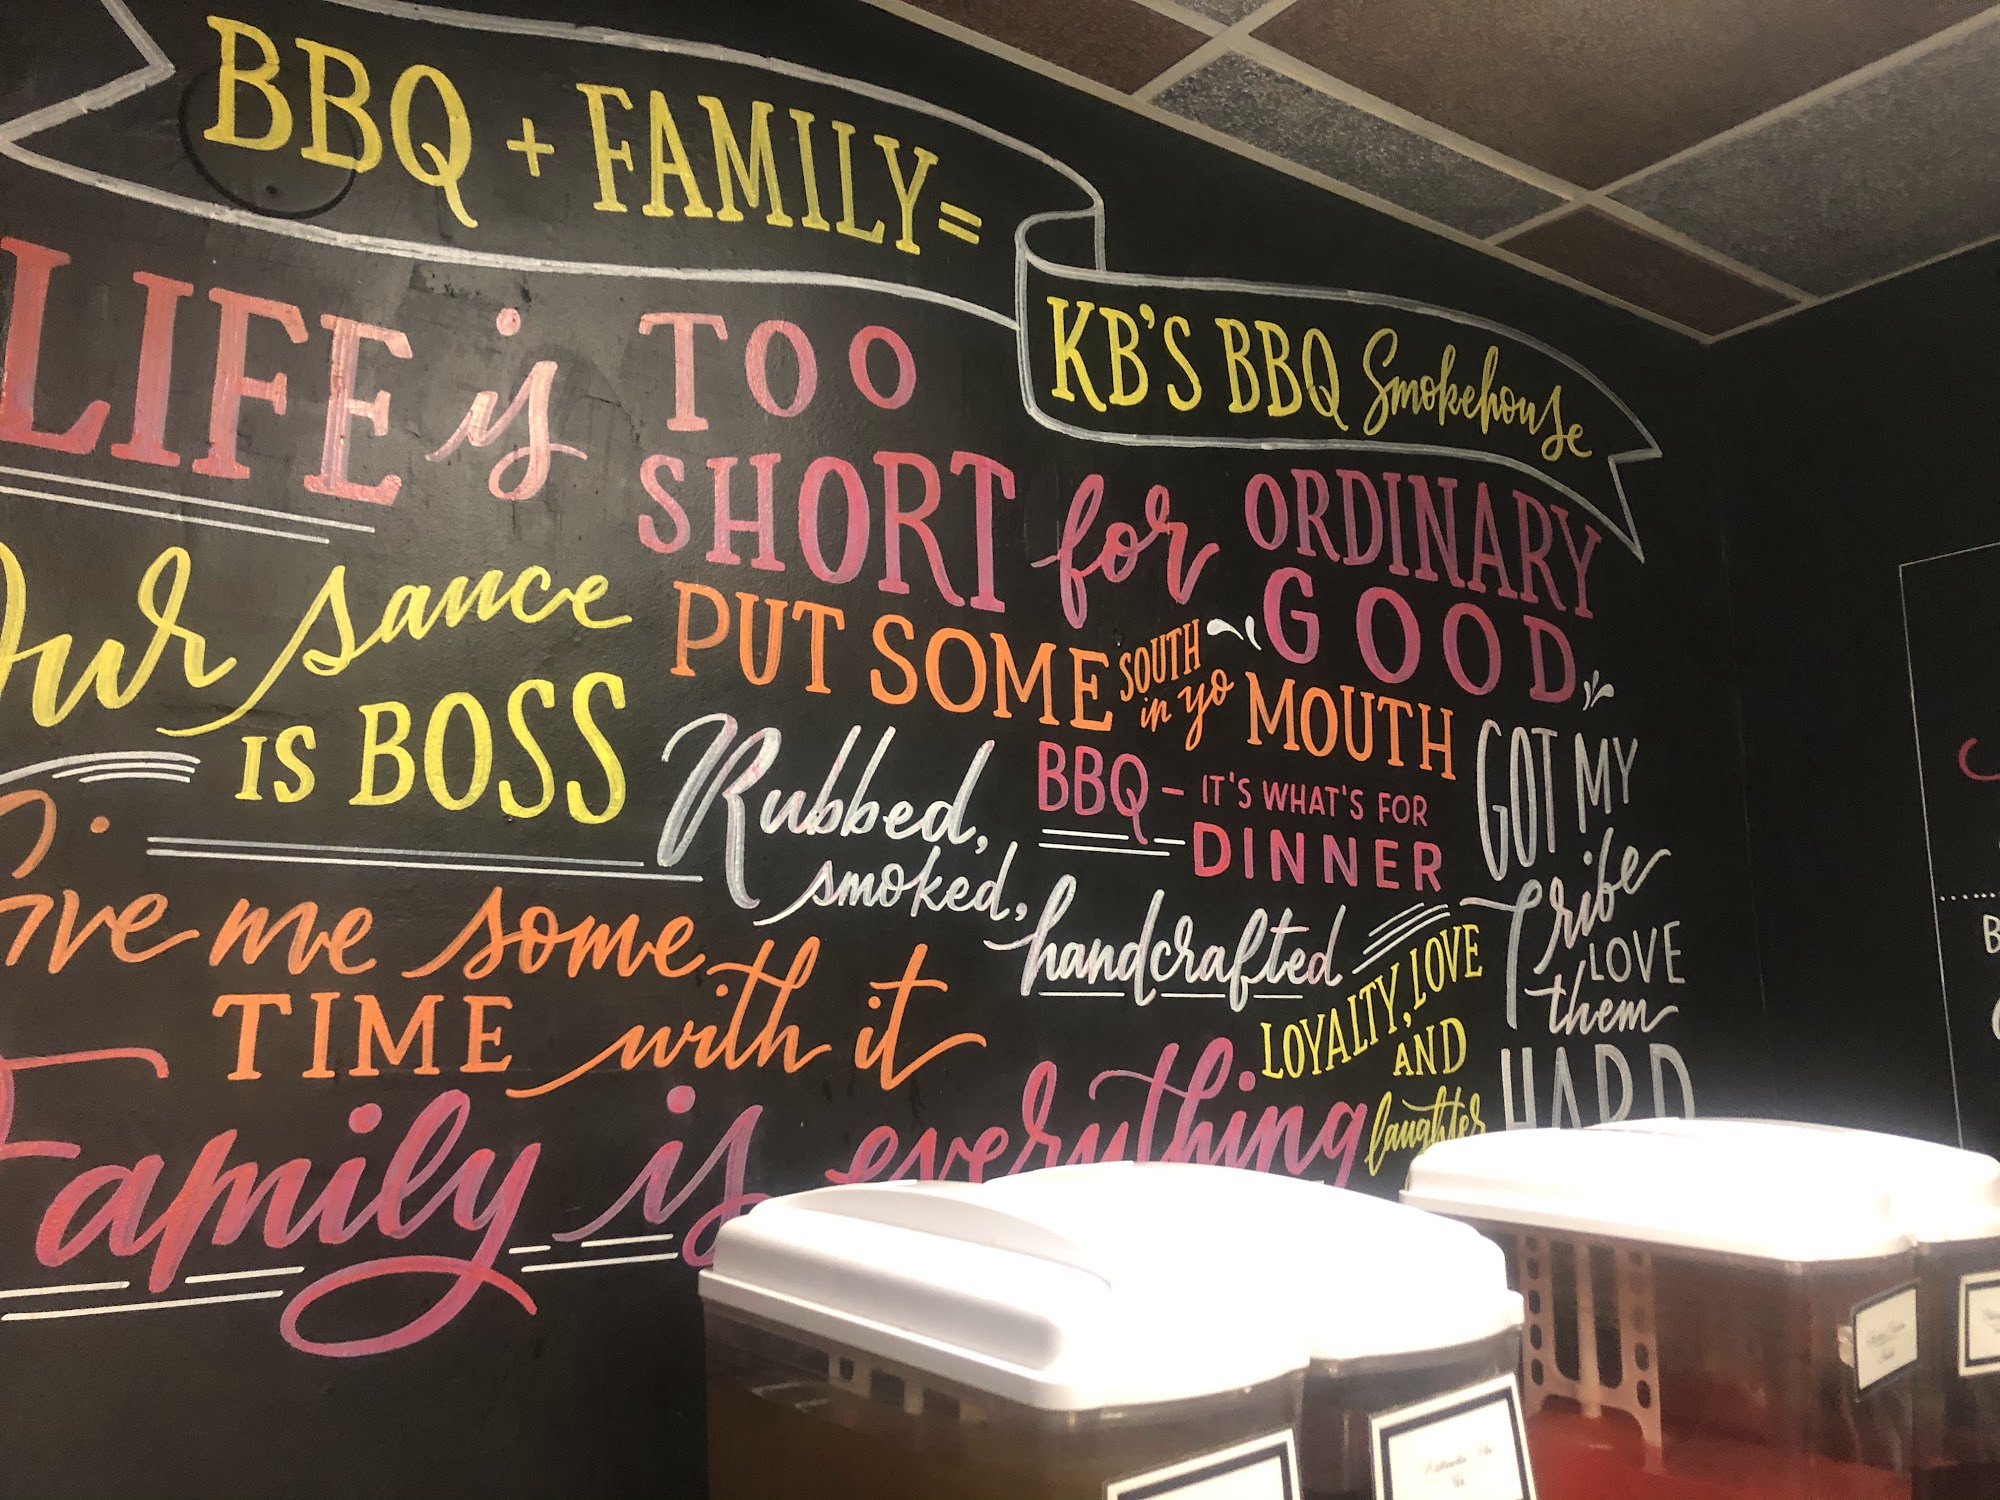 BBQ + FAMILY =
KB'S BBQ Smokehouse
LIFE is TOO
SHORT for ORDINARY
GOOD
Our sauce
IS BOSS
PUT SOME SOUTH
in yo MOUTH
Rubbed,
smoked,
handcrafted
BBQ - IT'S WHAT'S FOR
DINNER
GOT MY
Tribe
LOVE
them
HARD
Give me some
TIME with it
LOYALTY, LOVE
AND
laughter
Family is everything
B